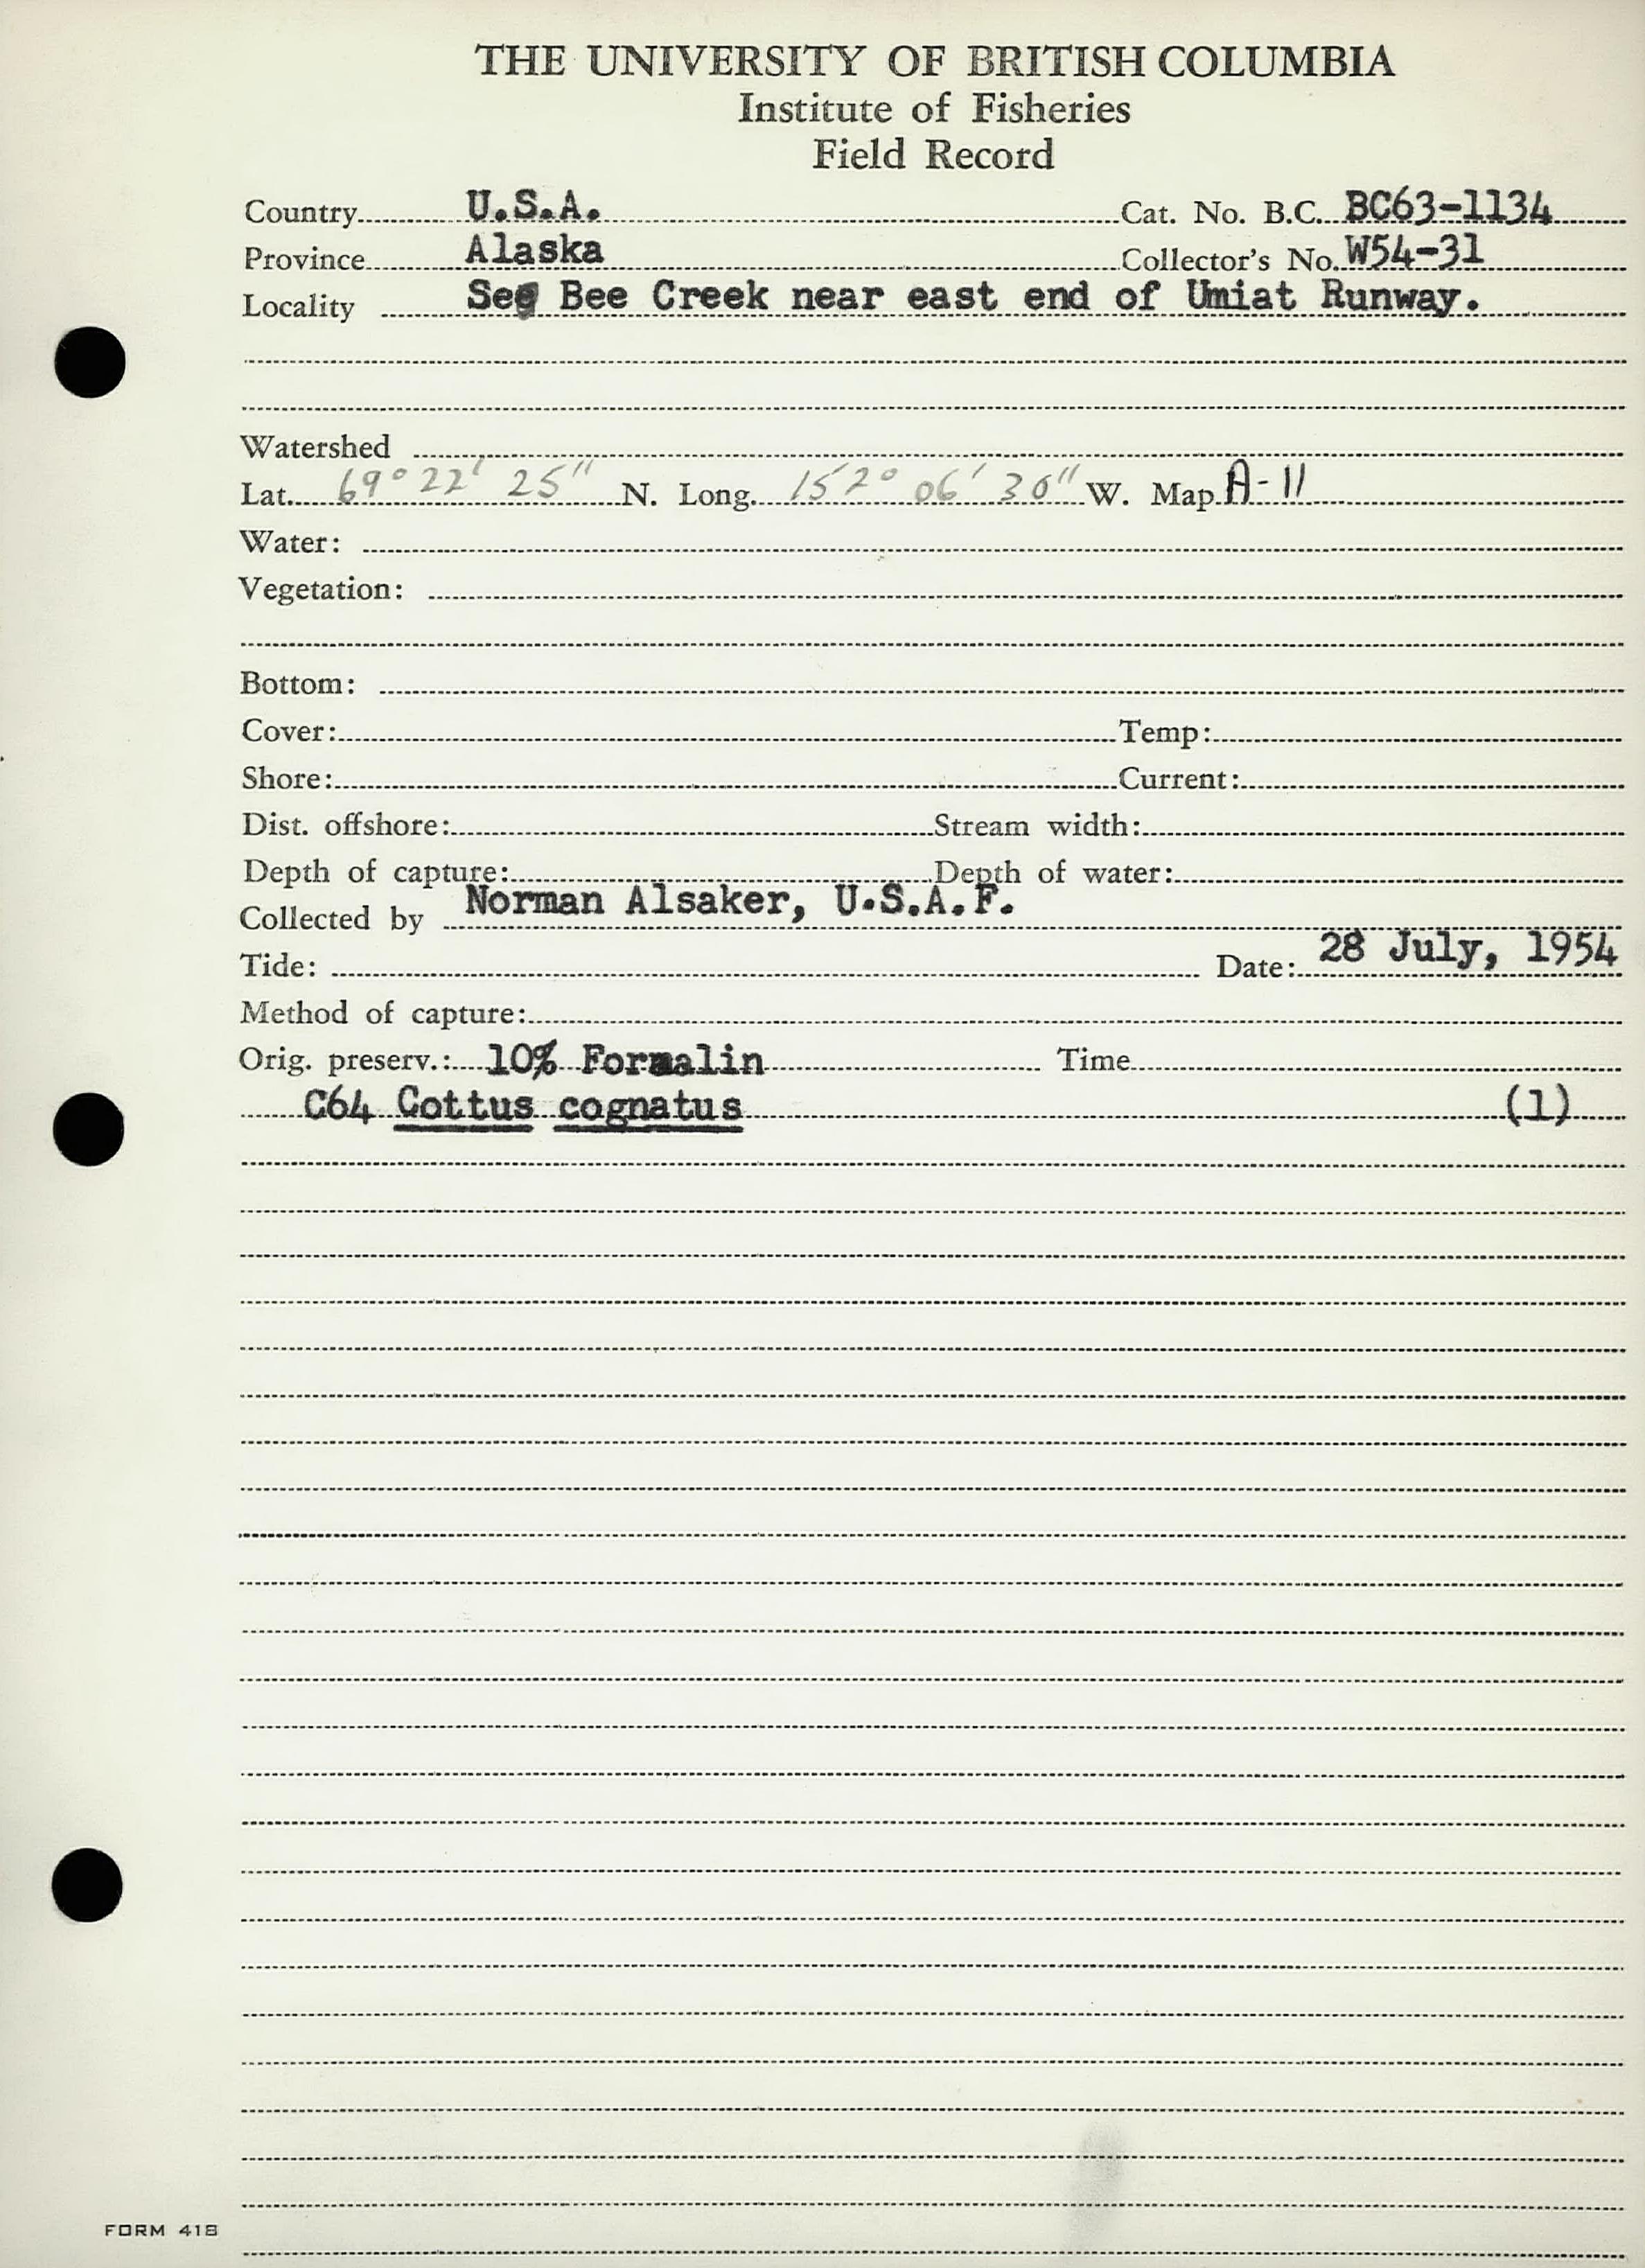 THE UNIVERSITY OF BRITISH COLUMBIA
Institute of Fisheries
Field Record
Country U.S.A. Cat. No. B.C. BC63-1134
Province Alaska Collector's No. W54-31
Locality Bee Creek near east end of Umiat Runway.
Watershed
Lat. 69° 22' 25" N. Long. 152° 06' 30" W. Map A-11
Water:
Vegetation:
Bottom:
Cover: Temp:
Shore: Current:
Dist. offshore: Stream width:
Depth of capture: Depth of water:
Collected by Norman Alsaker, U.S.A.F.
Tide: Date: 28 July, 1954
Method of capture:
Orig. preserv.: 10% Formalin Time
C64 Cottus cognatus (1)
FORM 418